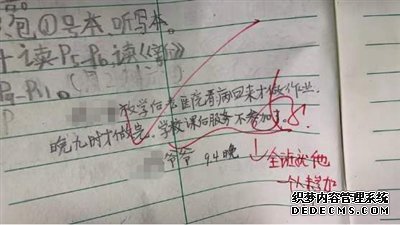 包①号本、听写本。
读P5-P6.读
放学后去医院看病回来才做作业.
晚九时才做完。学校课后服务不参加了。
爷爷 9.4晚
全班就他
一个人未参加
织梦内容管理系统
DEDECMS.COM